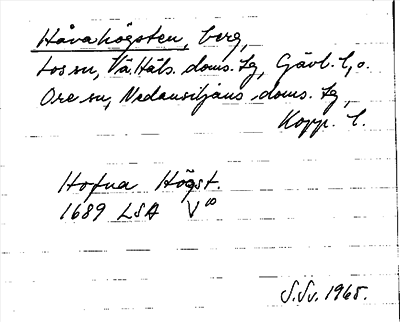 Håvahögsten, berg,
Los sn, Vä. Häls. doms. lg, Gävl. l., o.
Ore sn, Nedansiljans doms. lg,
Kopp. l.
Hofua Högst.
1689 LSA V10
S.Sv. 1965.